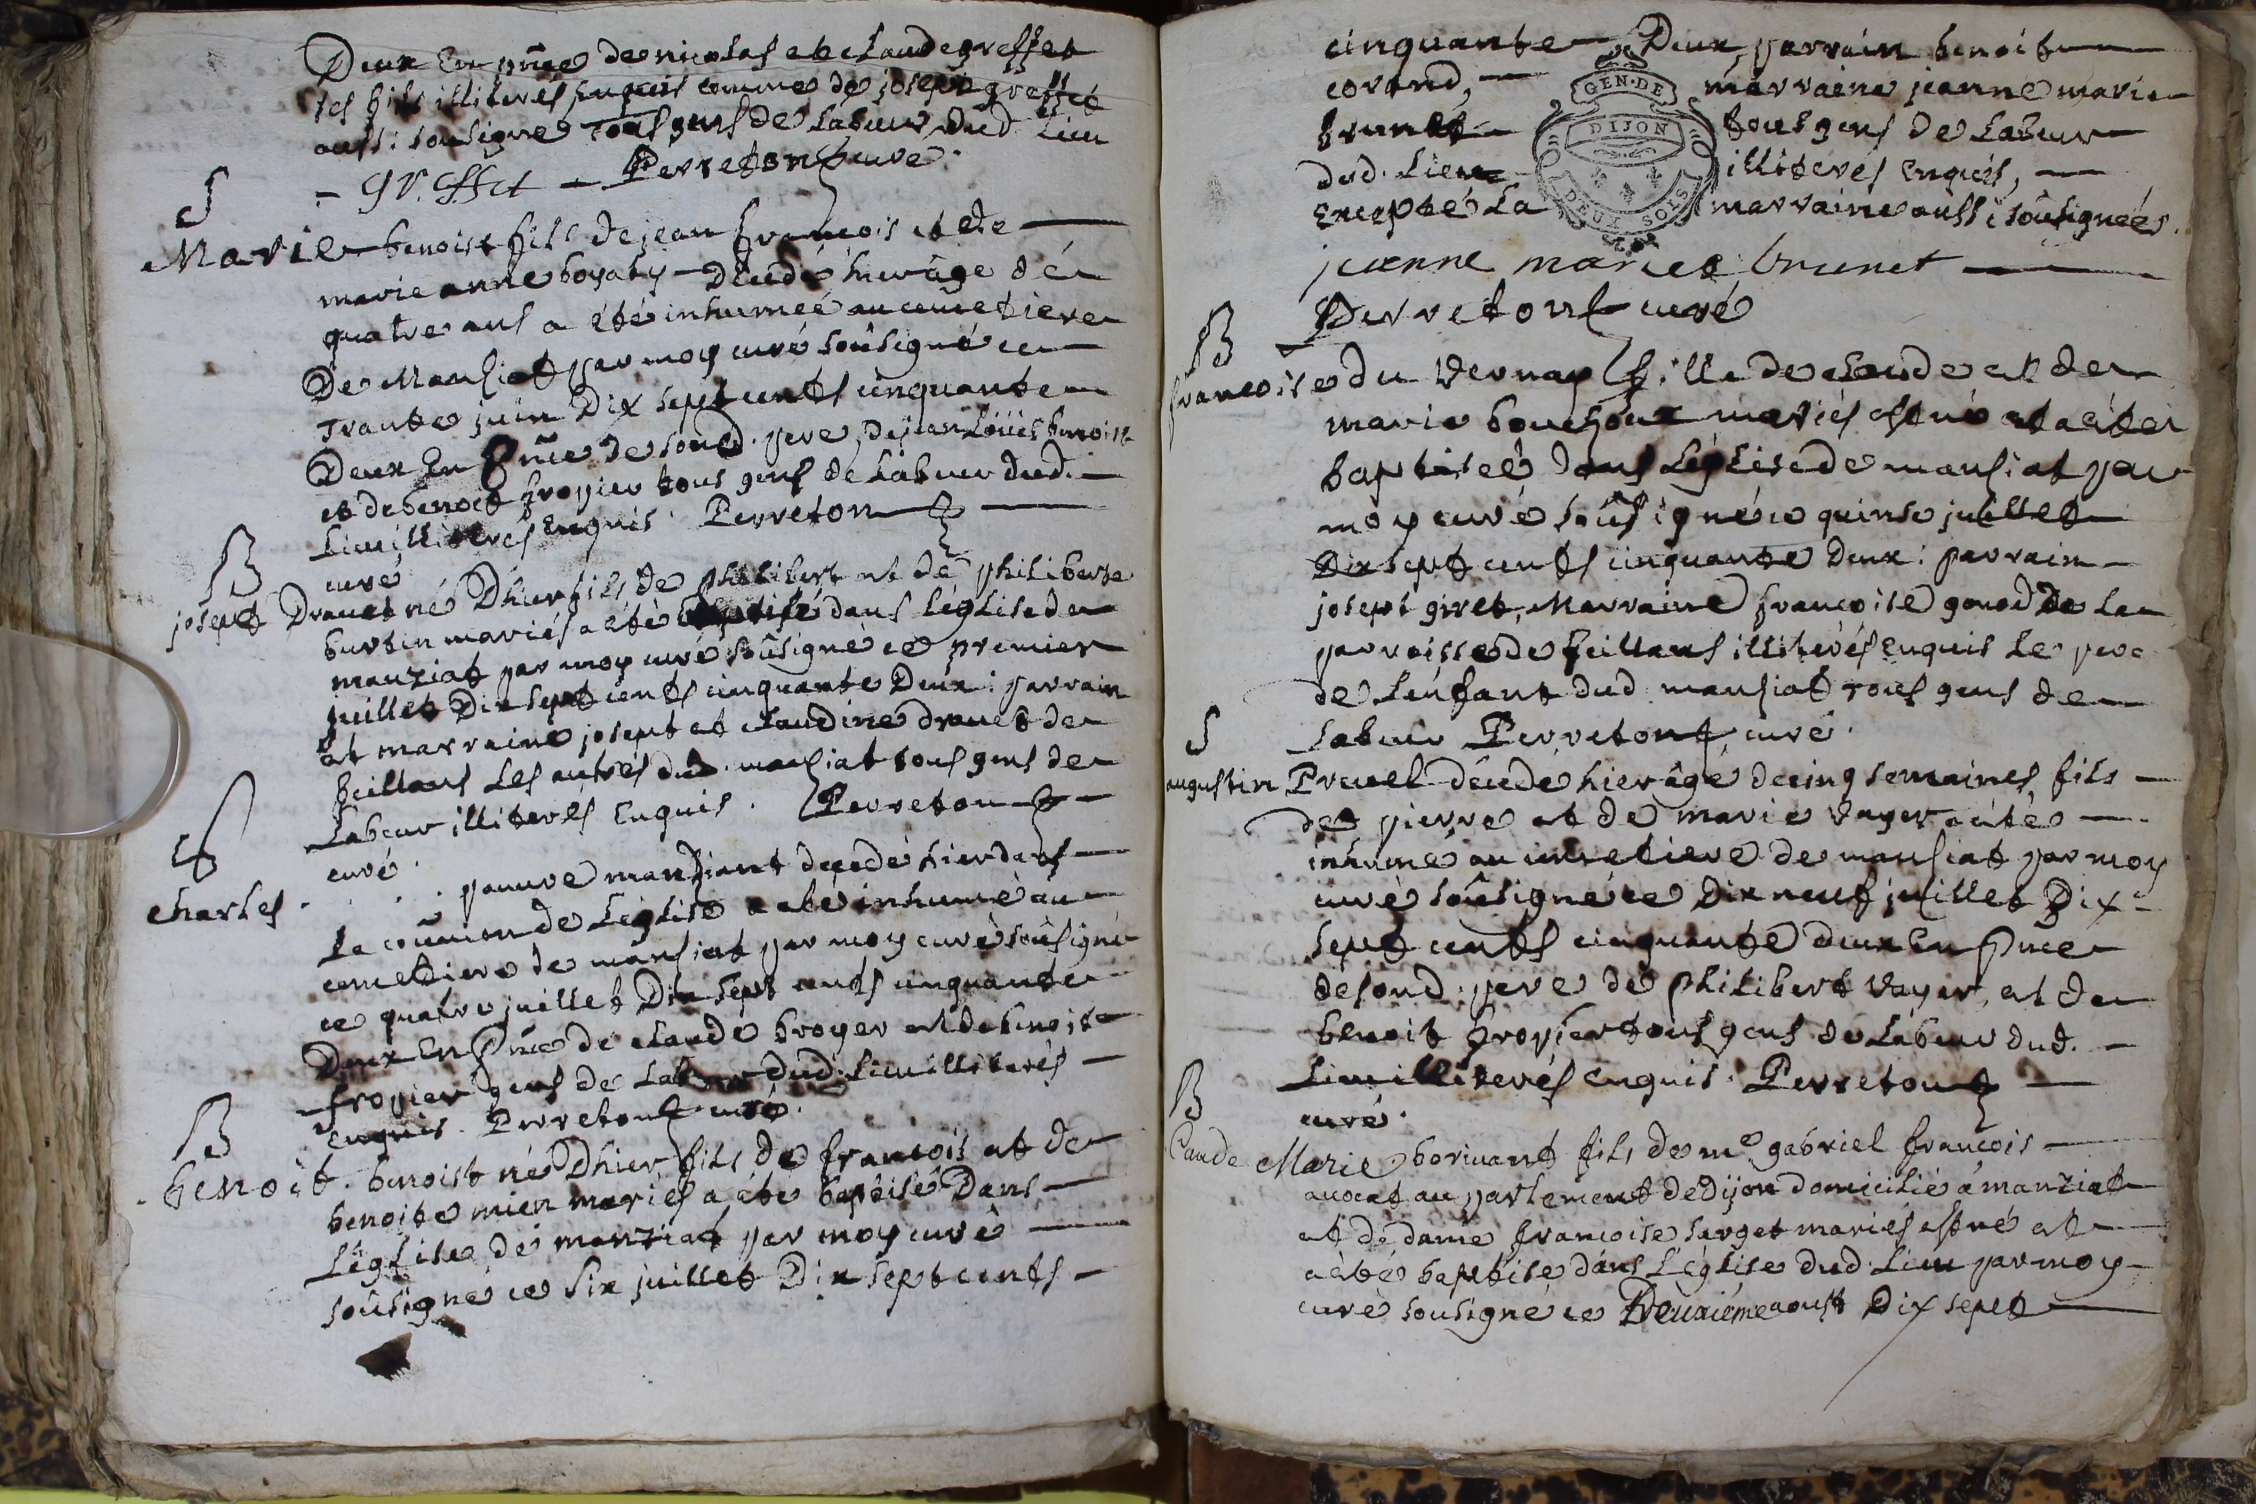 Deux En pñce de nicolas et claude greffet
ses fils illiterés Enquis comme de joseph greffet
aussi sousigné Tous gens de Labeur dud. Lieu
- Gr. effet - Perreton curé.
S
Marie benoist fils de jean françois et de
marie anne boyaty Décédé hier âgé de
quatre ans a été inhumée au cemetiere
De Mansiat par moy curé soûsigné ce
Trante juin Dix sept cents cinquante
Deux En pñce de soud. pere, de jean Loüis benoist
et de benoit froyier tous gens de Labeur dud.
Lieu illiterés Enquis. Perreton
curé
B
josept Drauet né Dhier fils de philibert et de philiberte
burtin mariés a été baptisé dans Léglise de
manziat par moy curé soûsigné ce premier
juillet Dix sept cents cinquante Deux : parrain
et marraine josept et claudine drauet de
feillans Les autres dud. mansiat tous gens de
Labeur illiterés Enquis. Perreton
curé.
S
charles . . . pauvre mandiant decedé hier dans
La coũmion de Léglise a eté inhumé au
cemetiere de mansiat par moy curé soûsigné
ce quatre juillet Dix sept cents cinquante
Deux En pñce de claude broyer et de benoit
froyier gens de Labeur dud. Lieu illiterés
enquis. Perreton curé.
B
benoit. benoist né Dhier fils de françois et de
benoite mien mariés a été baptisé Dans
Léglise de manziat par moy curé
soûsigné ce Six juillet Dix sept cents
cinquante Deux, parrain benoit
corand, marraine jeanne marie
brunet tous gens de Labeur
dud. Lieu illiterés Enquis,
Excepté La marraine aussi soûsignées.
GEN. DE
DIJON
DEUX SOLS
jeanne mariet brunet
Perreton curé
B
francoise du Vernay fille de claude et de
marie bouchoux mariés est né et a été
baptiseé dans Léglise de mansiat par
moy curé soûsigné ce quinse juillet
Dix sept cents cinquante Deux : parrain
josept giret, Marraine françoise gonod De La
parroisse de feillans illiterés Enquis Le pere
de Lenfant dud. mansiat Tous gens de
Labeur Perreton curé.
S
augustin Pruel décédé hier âgé de cinq semaines, fils
de pierre et de marie Vayer a été
inhumé au cemetiere de mansiat par moy
curé soûsigné ce Dix neuf juillet Dix
sept cents cinquante deux En pñce
de soud. pere de Philibert Vayer, et de
benoit froyier tous gens de Labeur dud.
Lieu illiterés enquis. Perreton
curé.
B
Caude Marie borivant fils de me gabriel françois
avocat au parlement de dijon domicilié à manziat
et de dame françoise sarget mariés est né et
a été baptisé dans Léglise dud. Lieu par moy
curé sousigné ce Deuxiéme aoust Dix sept